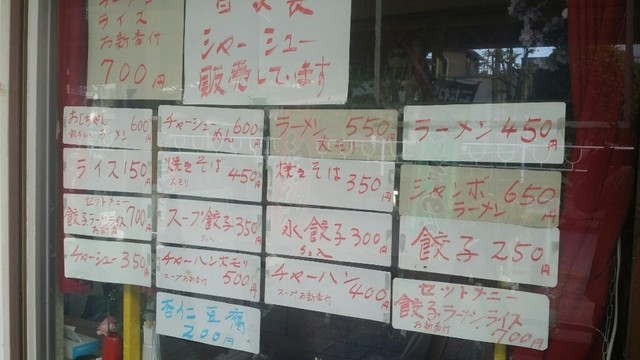 ライス
お新香付
700円
自家製
シャーシュー
販売しています
おじちゃん 600円
ラーメン
チャーシュー 600円
めん
ラーメン 550円
大モリ
ラーメン 450円
ライス 150円
焼きそば 450円
大モリ
焼きそば 350円
ジャンボ 650円
ラーメン
セットメニー
餃子ラーメンライス 700円
お新香付
スープ餃子 350円
5コ入
水餃子 300円
5コ入
餃子 250円
チャーシュー 350円
チャーハン大モリ
スープお新香付 500円
チャーハン
スープお新香付 400円
セットメニー
餃子.ラーメン.ライス
お新香付 700円
杏仁豆腐
200円